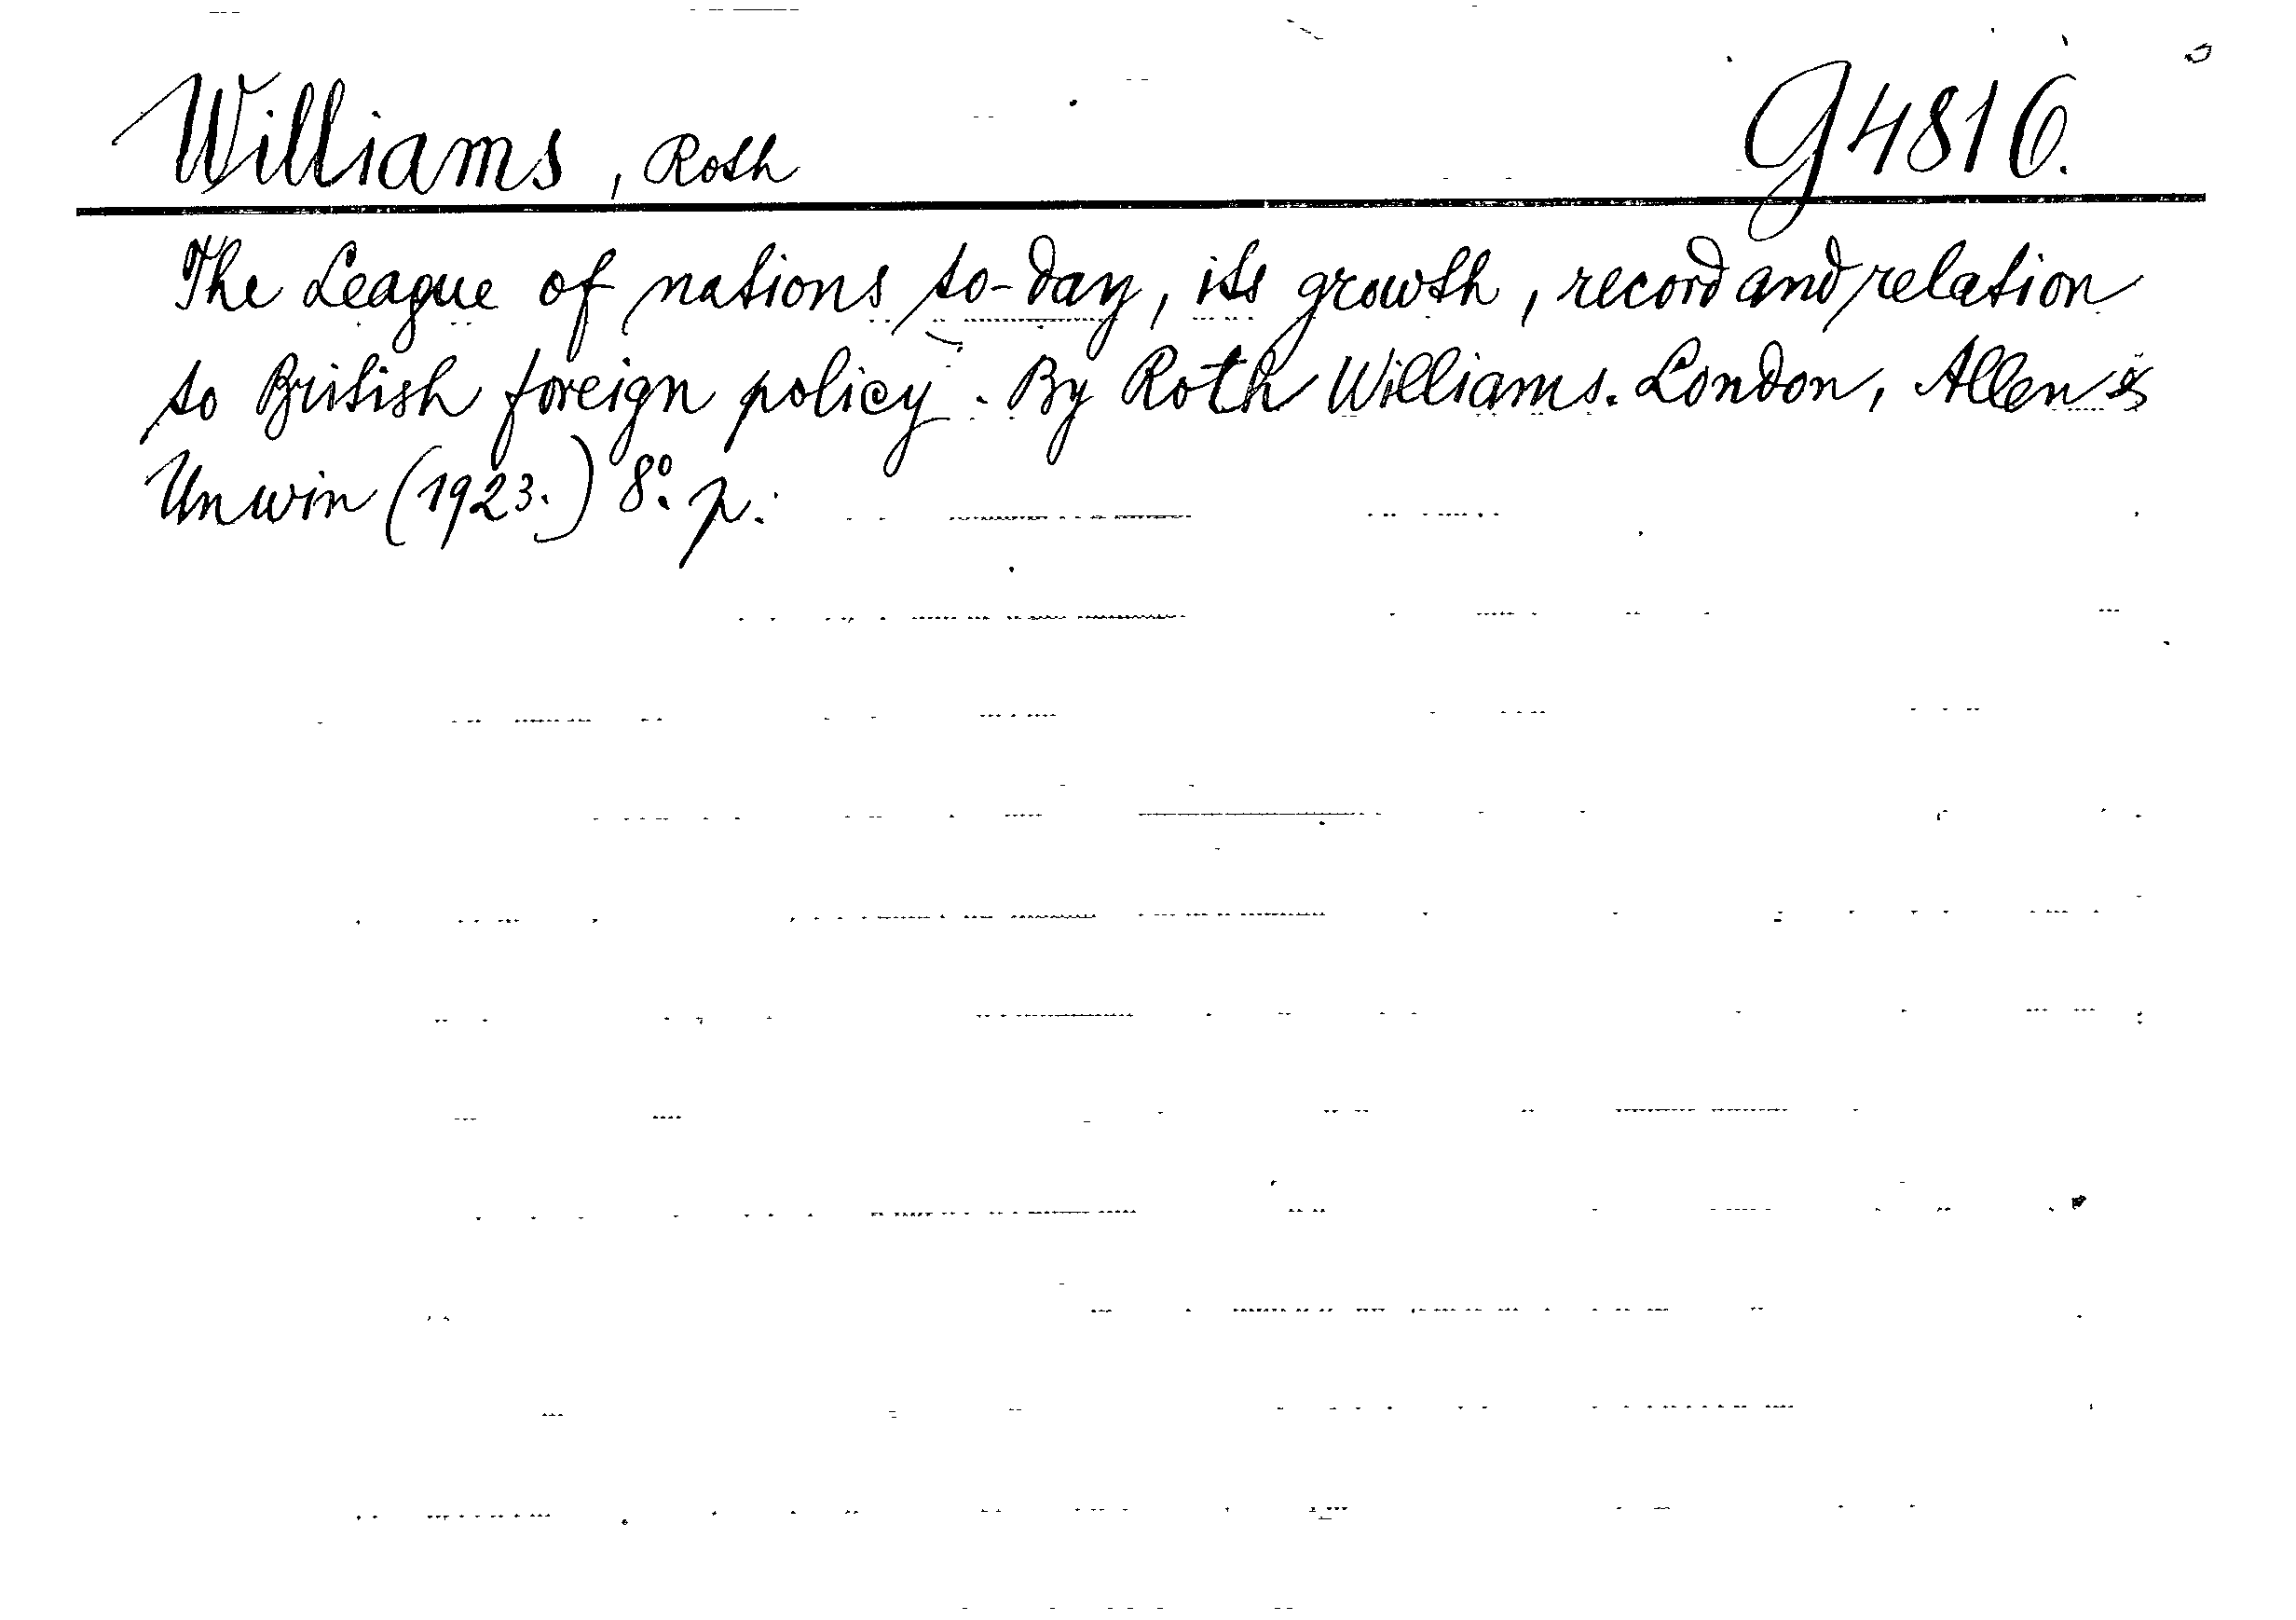 Williams, Roth G4816.
The League of nations to-day, its growth, record and relation
to British foreign policy. By Roth Williams. London, Allen &
Unwin (1923.) 8°. p.